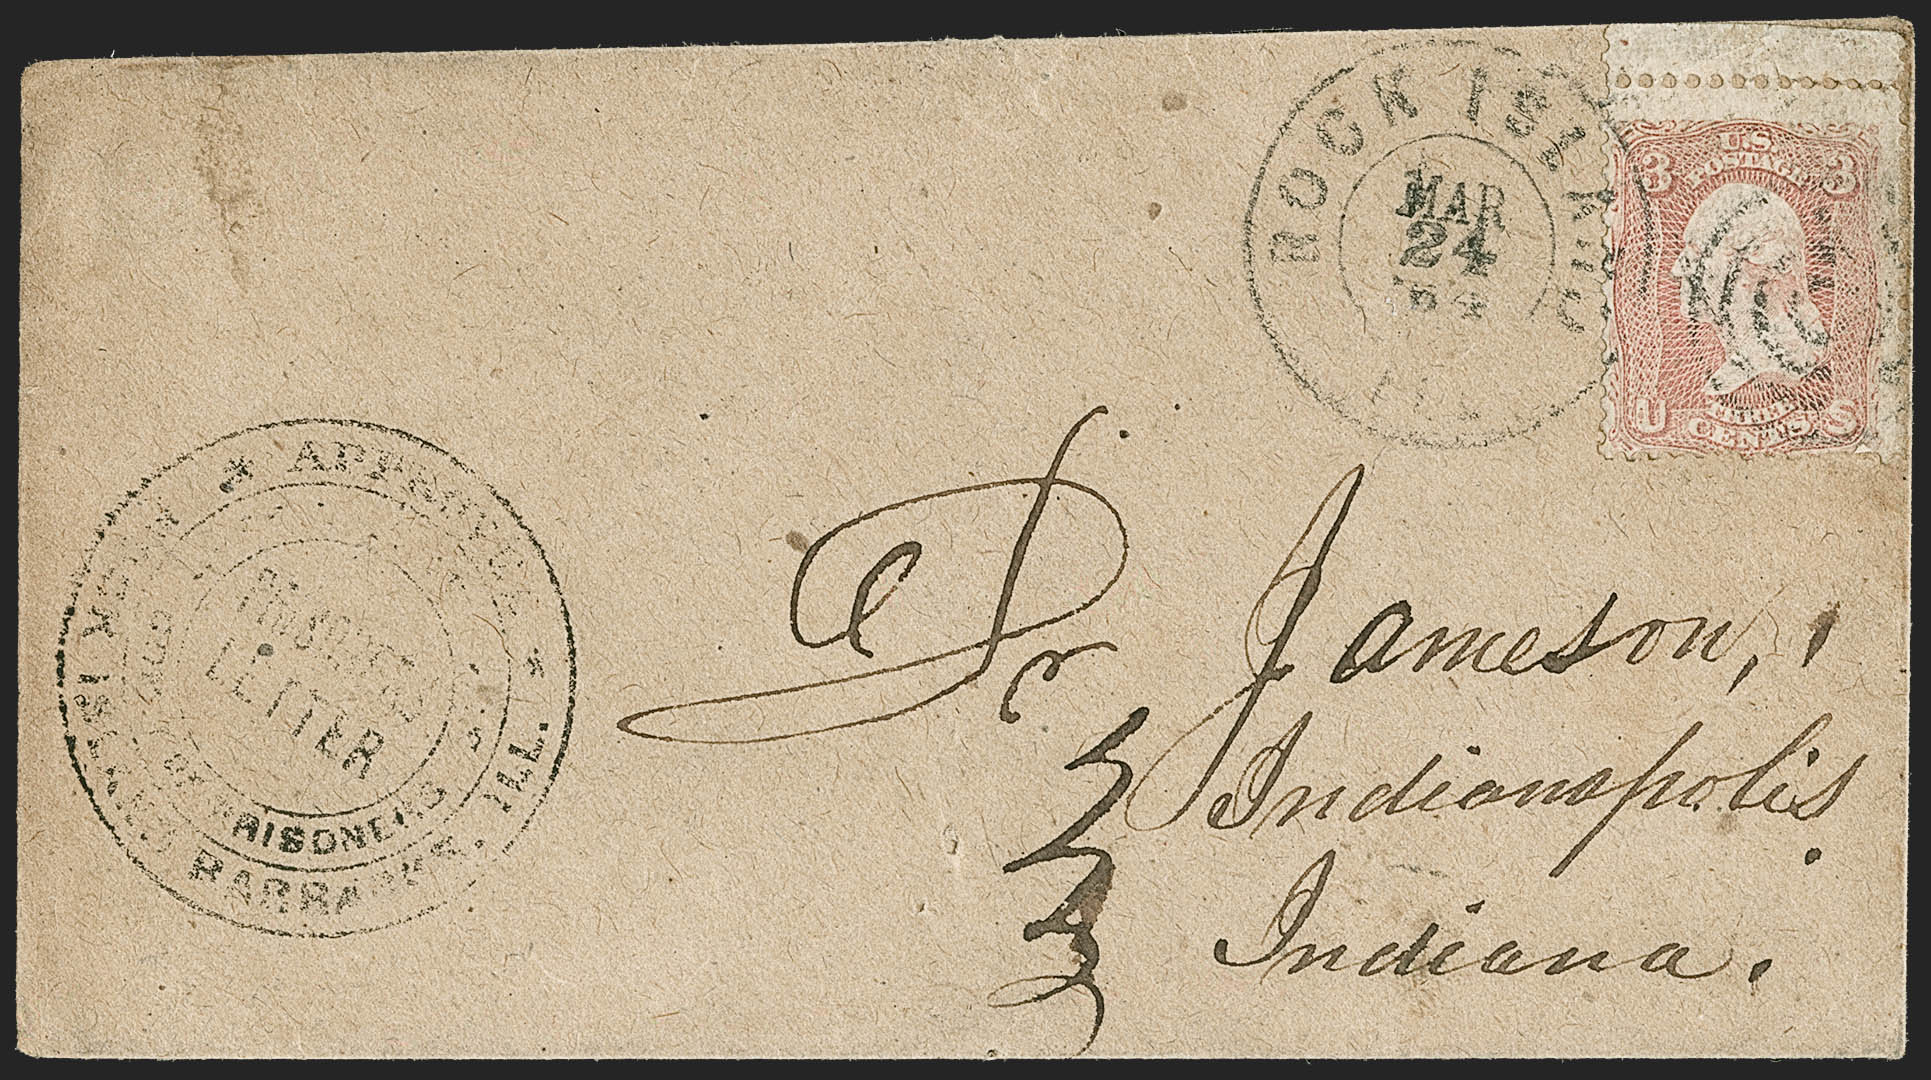 ROCK ISLAND
MAR
24
64
ILL.
3 U.S. 3
POSTAGE
THREE
U CENTS S
APPROVED
ROCK ISLAND BARRACKS, ILL.
PRISONERS
LETTER
OF PRISONERS
Dr Jameson,
Indianapolis
Indiana.